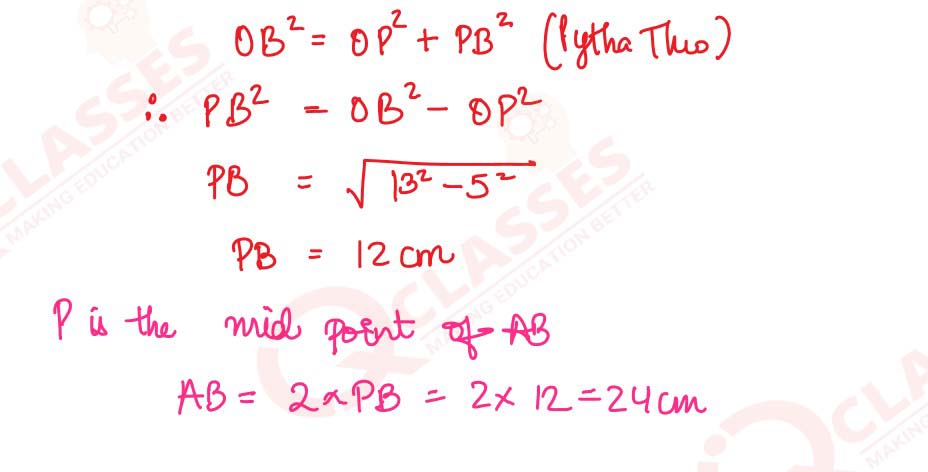 OB² = OP² + PB² (Pytha Theo)
∴ PB² = OB² - OP²
PB = √13² - 5²
PB = 12 cm
P is the mid point of AB
AB = 2 x PB = 2 x 12 = 24 cm
CLASSES
MAKING EDUCATION BETTER
CLASSES
MAKING EDUCATION BETTER
CLASSES
MAKING